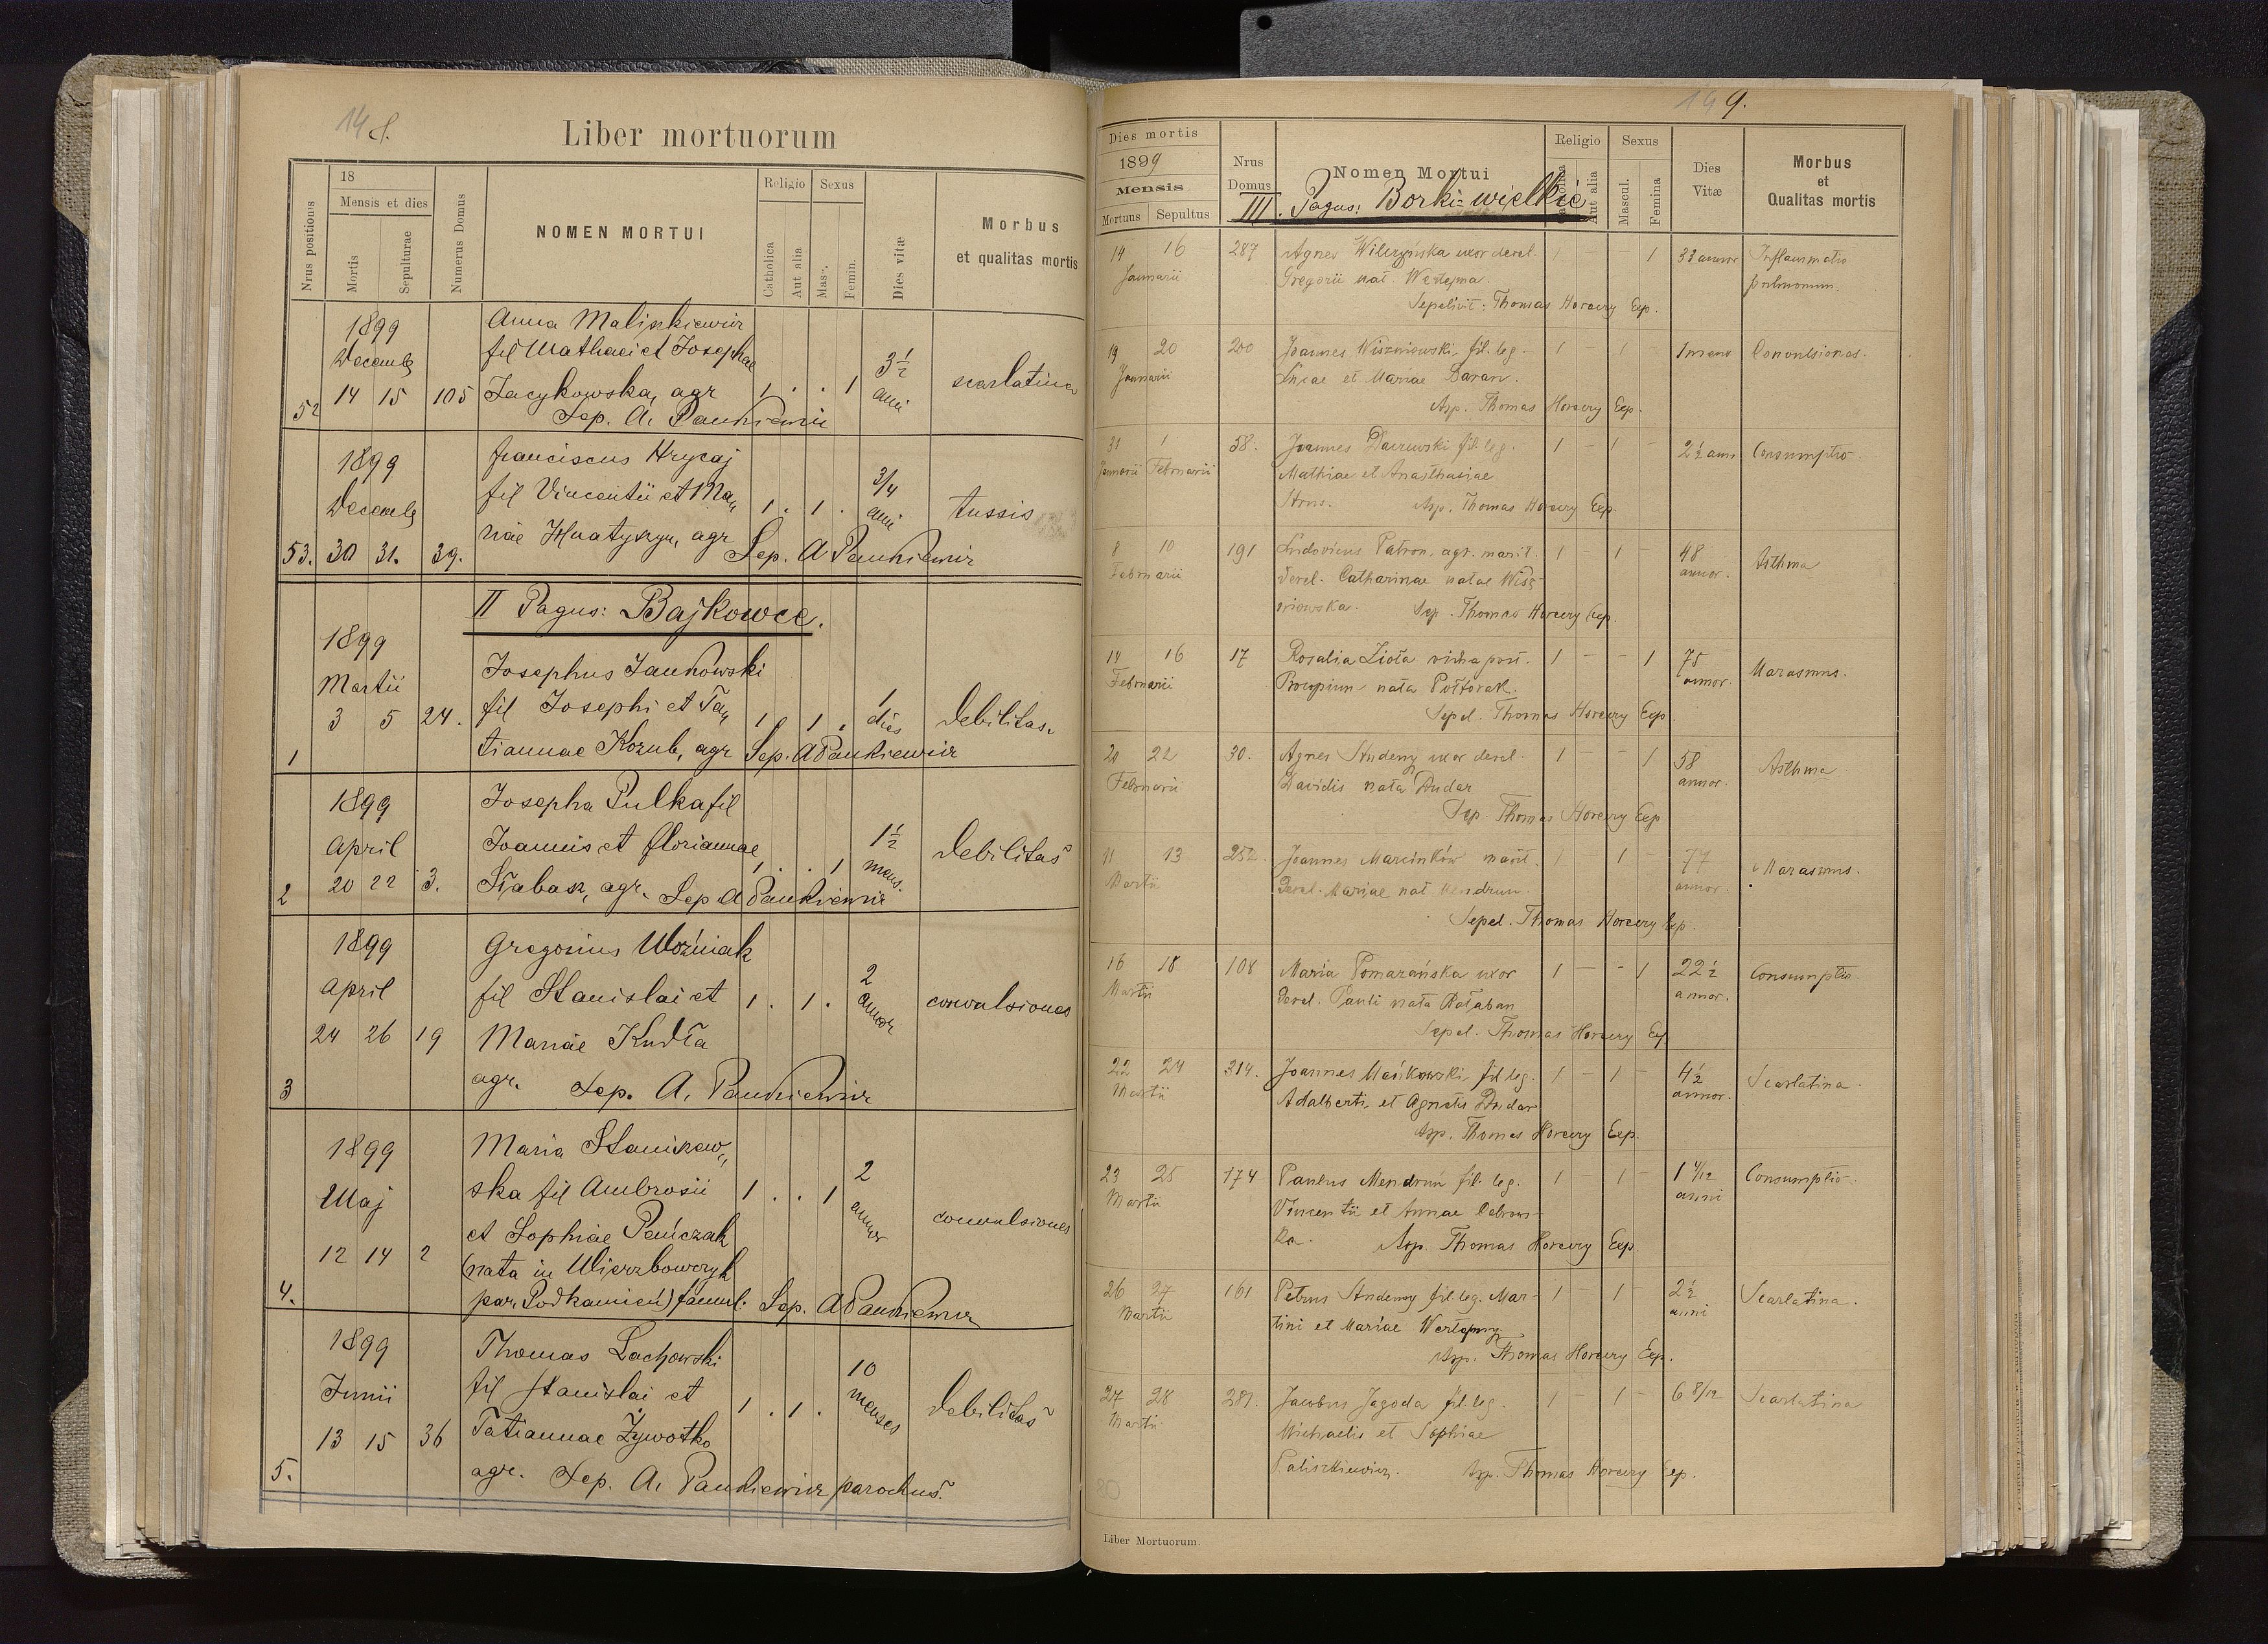 148.
Liber mortuorum
Nrus positionis
18
Mensis et dies
Mortis
Sepulturae
Numerus Domus
NOMEN MORTUI
Religio
Catholica
Aut alia
Sexus
Masc.
Femin.
Dies vitæ
Morbus
et qualitas mortis
1899
Decemb
52 14 15 105
Anna Maliszkiewicz
fil Mathaei et Josephae
Jacykowska, agr
Sep. A. Pankiewicz
1 . . 1
3 1/2
ani
scarlatina
1899
Decemb
53. 30 31. 39.
Franciscus Hrycaj
fil Vincentii et Ma„
riae Hnatyszyn, agr
Sep. A Pankiewicz
1 . 1 .
3/4
ani
tussis
II Pagus: Bajkowce.
1899
Martii
3 5 24.
1
Josephus Jankowski
fil Josephi et Ta„
tiannae Kozub, agr Sep. A Pankiewicz
1 . 1 .
1
dies
debilitas.
1899
April
2 20 22 3.
Josepha Pulka fil
Joannis et Floriannae
Słabasz, agr. Sep A Pankiewicz
1 . . 1
1 1/2
mens.
debilitas
1899
April
24 26 19
3
Gregorius Woźniak
fil Stanislai et
Mariae Kudła
agr. Sep. A. Pankiewicz
1 . 1 .
2
annor
convulsiones
1899
Maj
12 14 2
4.
Maria Staniszew„
ska fil Ambrosii
et Sophiae Pańczak
(nata in Wierzbowczyk
par. Podkamień) famul. Sep. A Pankiewicz
1 . . 1
2
annor
convulsiones
1899
Junii
13 15 36
5.
Thomas Lachowski
fil Stanislai et
Tatiannae Żywotko
agr. Sep. A. Pankiewicz parochus
1 . 1 .
10
menses
debilitas
149.
Dies mortis
1899
Mensis
Mortuus Sepultus
Nrus
Domus
Nomen Mortui
III. Pagus: Borki-wielkie
Religio
Catholica
Aut alia
Sexus
Mascul.
Femina
Dies
Vitæ
Morbus
et
Qualitas mortis
14 16 287 Agnes Wilczyńska uxor derel. 1 — — 1 33 annor Inflammatio
Januarii Gregorii nat. Wertepna. pulmonum.
Sepelivit: Thomas Horaczy Exp.
19 20 200 Joannes Wiszniowski, fil. leg. 1 — 1 — 1 mens Convulsiones.
Januarii Lucae et Mariae Baran.
Sep. Thomas Horaczy Exp.
31 1 58. Joannes fil. leg. 1 — 1 — 2 1/2 ann Consumptio.
Januarii Februarii Mathiae et Anasthasiae
Strus. Sep. Thomas Horaczy Exp.
8 10 191 Ludovicus Patron, agr. marit. 1 — 1 — 48 Asthma
Februarii derel. Catharinae natae Wisz- annor.
niowska. Sep. Thomas Horaczy Exp.
14 16 17 Rosalia Ziola vidua post. 1 — — 1 75 Marasmus.
Februarii Procopium nata Półtorak. annor.
Sepel. Thomas Horaczy Exp.
20 22 30. Agnes Studeny uxor derel. 1 — — 1 58 Asthma
Februarii Davidis nata Dudar annor.
Sep. Thomas Horaczy Exp
11 13 252. Joannes Marcinków marit. 1 — 1 — 77 Marasmus.
Martii Derel. Mariae nat Mendrun. annor.
Sepel. Thomas Horaczy Exp.
16 18 108 Maria Pomarańska uxor 1 — - 1 22 1/2 Consumptio.
Martii Derel. Pauli nata Rataban annor.
Sepel. Thomas Horaczy Exp
22 24 314. Joannes Mańkowski, fil leg. 1 — 1 — 4 1/2 Scarlatina.
Martii Adalberti et Agnetis Dudar annor.
Sep. Thomas Horaczy Exp.
23 25 174 Paulus Mendrun fil. leg. 1 — 1 — 1 4/12 Consumptio.
Martii Vincentii et Annae Dabrows- anni
ka. Sep. Thomas Horaczy Exp.
26 27 161 Petrus Studeny fil. leg. Mar- 1 — 1 — 2 1/2 Scarlatina.
Martii tini et Mariae Wertepny. anni
Sep. Thomas Horaczy Exp.
27 28 281. Jacobus Jagoda fil. leg. 1 — 1 — 6 8/12 Scarlatina
Martii Michaelis et Sophiae
Paliszkiewicz. Sep. Thomas Horaczy Exp.
Liber Mortuorum.